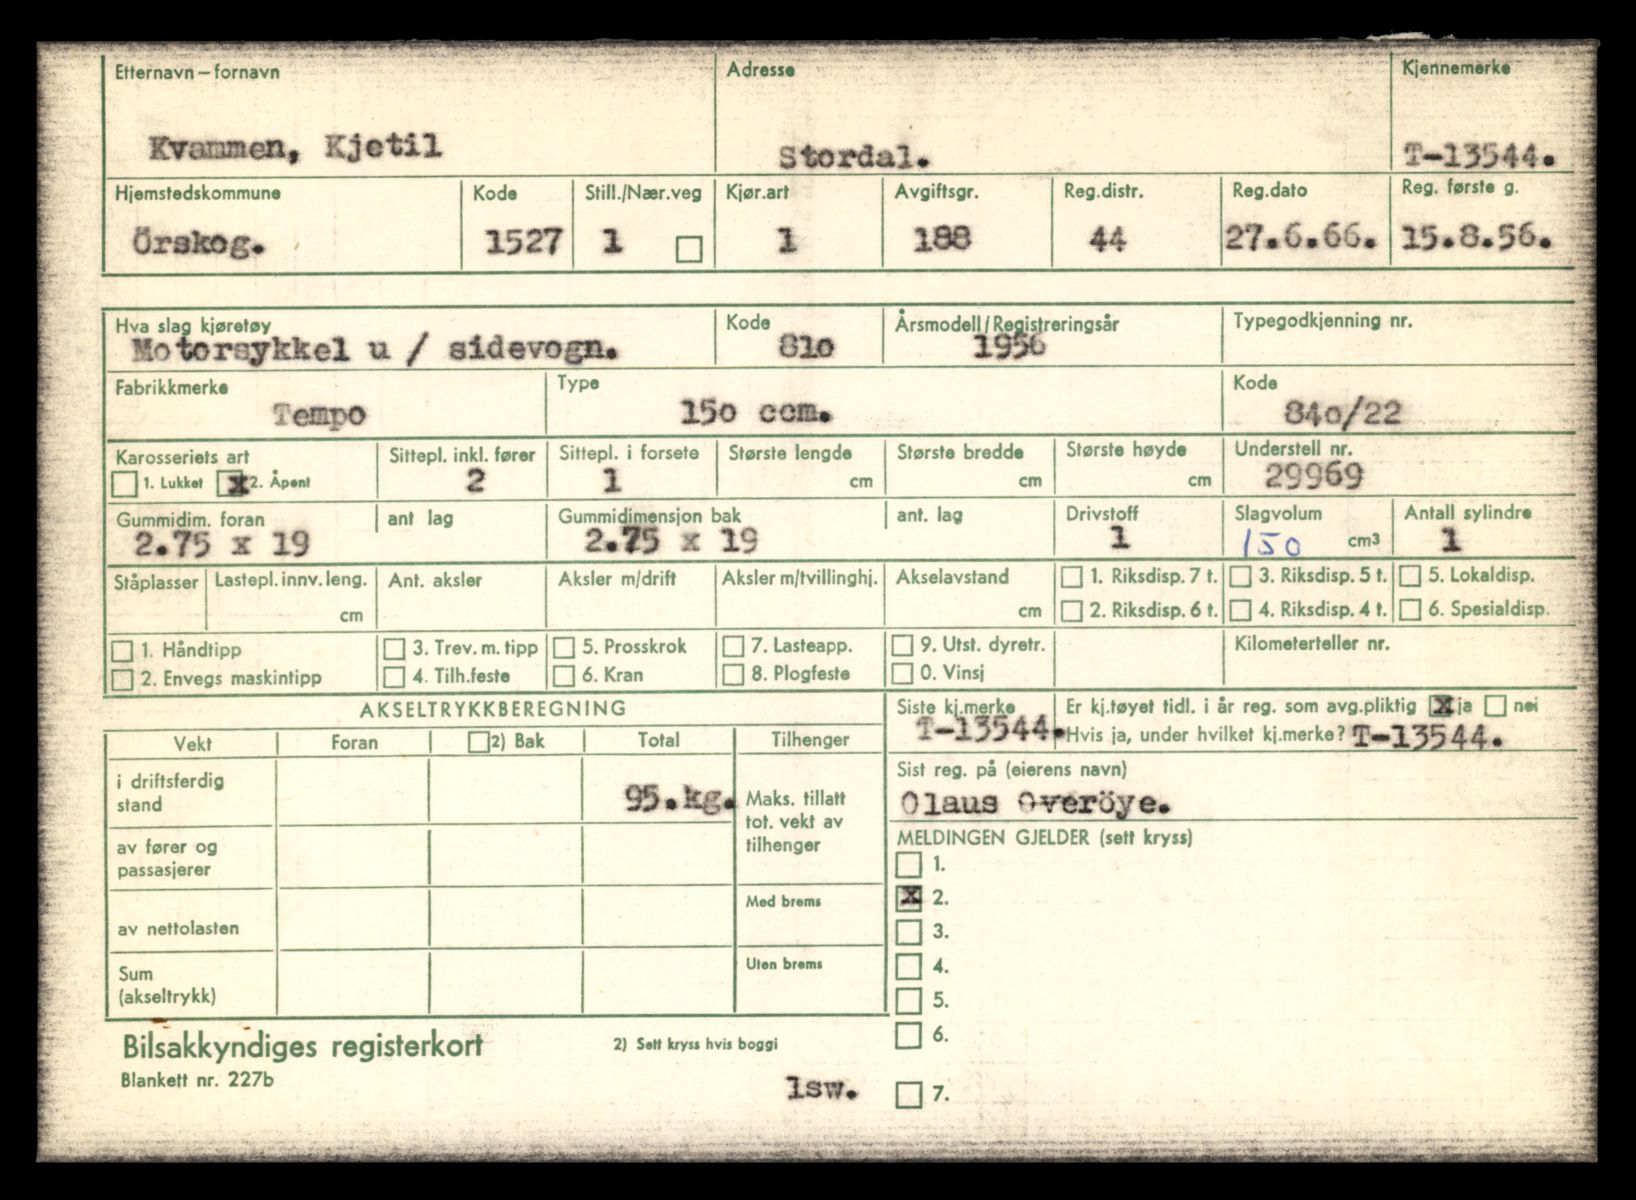 Etternavn – fornavn Adresse Kjennemerke
Kvammen, Kjetil Stordal. T-13544.
Hjemstedskommune Kode Still./Nær.veg Kjør.art Avgiftsgr. Reg.distr. Reg.dato Reg. første g.
Örskog. 1527 1 1 188 44 27.6.66. 15.8.56.
Hva slag kjøretøy Kode Årsmodell/Registreringsår Typegodkjenning nr.
Motorsykkel u / sidevogn. 810 1956
Fabrikkmerke Type Kode
Tempo 150 ccm. 840/22
Karosseriets art Sittepl. inkl. fører Sittepl. i forsete Største lengde Største bredde Største høyde Understell nr.
1. Lukket x 2. Åpent 2 1 cm cm cm 29969
Gummidim. foran ant lag Gummidimensjon bak ant. lag Drivstoff Slagvolum Antall sylindre
2.75 x 19 2.75 x 19 1 150 cm3 1
Ståplasser Lastepl. innv. leng. Ant. aksler Aksler m/drift Aksler m/tvillinghj. Akselavstand 1. Riksdisp. 7 t. 3. Riksdisp. 5 t. 5. Lokaldisp.
cm cm 2. Riksdisp. 6 t. 4. Riksdisp. 4 t. 6. Spesialdisp.
1. Håndtipp 3. Trev. m. tipp 5. Prosskrok 7. Lasteapp. 9. Utst. dyretr. Kilometerteller nr.
2. Envegs maskintipp 4. Tilh.feste 6. Kran 8. Plogfeste 0. Vinsj
AKSELTRYKKBEREGNING Siste kj.merke Er kj.tøyet tidl. i år reg. som avg.pliktig x ja nei
T-13544. Hvis ja, under hvilket kj.merke? T-13544.
Vekt Foran 2) Bak Total Tilhenger
Sist reg. på (eierens navn)
i driftsferdig
stand 95.kg. Maks. tillatt Olaus Overöye.
tot. vekt av
tilhenger
MELDINGEN GJELDER (sett kryss)
av fører og
passasjerer
1.
Med brems x 2.
av nettolasten 3.
Uten brems 4.
Sum
(akseltrykk) 5.
6.
Bilsakkyndiges registerkort 2) Sett kryss hvis boggi
Blankett nr. 227b
lsw. 7.